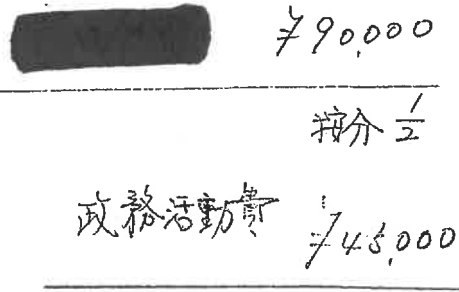 ¥90,000
按分 1/2
政務活動費 ¥45,000